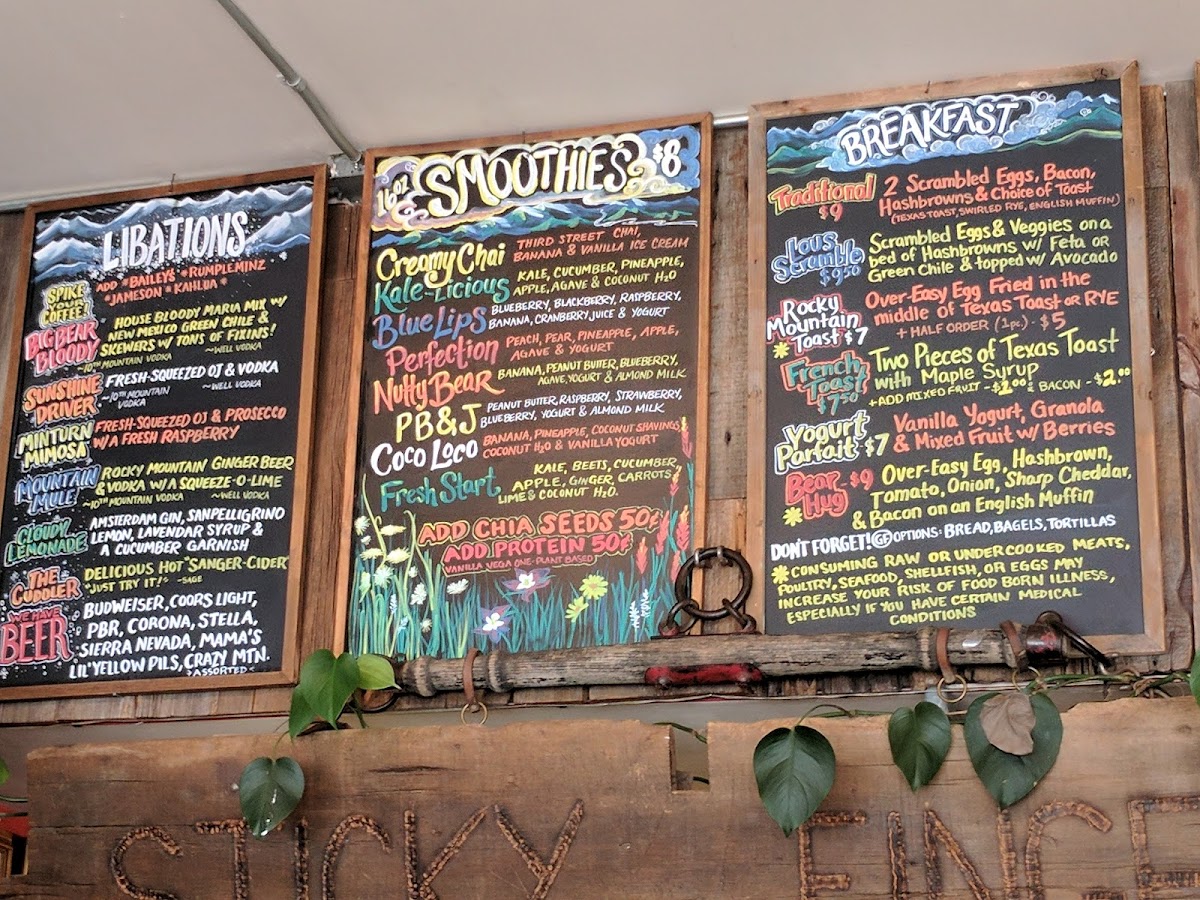 LIBATIONS
SPIKE YOUR COFFEE!
ADD *BAILEYS *RUMPLEMINZ
*JAMESON *KAHLUA*
BIG BEAR BLOODY
HOUSE BLOODY MARIA MIX W/
NEW MEXICO GREEN CHILE &
SKEWERS W/ TONS OF FIXINS!
~10TH MOUNTAIN VODKA ~WELL VODKA
SUNSHINE DRIVER
FRESH-SQUEEZED OJ & VODKA
~10TH MOUNTAIN VODKA ~WELL VODKA
MINTURN MIMOSA
FRESH-SQUEEZED OJ & PROSECCO
W/A FRESH RASPBERRY
MOUNTAIN MULE
ROCKY MOUNTAIN GINGER BEER
& VODKA W/A SQUEEZE-O-LIME
~10TH MOUNTAIN VODKA ~WELL VODKA
CLOUDY LEMONADE
AMSTERDAM GIN, SANPELLIGRINO
LEMON, LAVENDAR SYRUP &
A CUCUMBER GARNISH
THE CUDDLER
DELICIOUS HOT "SANGER-CIDER"
"JUST TRY IT!" -SAGE
WE HAVE BEER
BUDWEISER, COORS LIGHT,
PBR, CORONA, STELLA,
SIERRA NEVADA, MAMA'S
LIL' YELLOW PILS, CRAZY MTN.
-ASSORTED-
16 OZ SMOOTHIES $8
Creamy Chai
THIRD STREET CHAI,
BANANA & VANILLA ICE CREAM
Kale-Licious
KALE, CUCUMBER, PINEAPPLE,
APPLE, AGAVE & COCONUT H2O
Blue Lips
BLUEBERRY, BLACKBERRY, RASPBERRY,
BANANA, CRANBERRY JUICE & YOGURT
Perfection
PEACH, PEAR, PINEAPPLE, APPLE,
AGAVE & YOGURT
Nutty Bear
BANANA, PEANUT BUTTER, BLUEBERRY,
AGAVE, YOGURT & ALMOND MILK
PB&J
PEANUT BUTTER, RASPBERRY, STRAWBERRY,
BLUEBERRY, YOGURT & ALMOND MILK
Coco Loco
BANANA, PINEAPPLE, COCONUT SHAVINGS
COCONUT H2O & VANILLA YOGURT
Fresh Start
KALE, BEETS, CUCUMBER,
APPLE, GINGER, CARROTS,
LIME & COCONUT H2O.
ADD CHIA SEEDS 50¢
ADD PROTEIN 50¢
VANILLA VEGA ONE-PLANT BASED
BREAKFAST
Traditional $9
2 Scrambled Eggs, Bacon,
Hashbrowns & Choice of Toast
(TEXAS TOAST, SWIRLED RYE, ENGLISH MUFFIN)
Lou's Scramble $9.50
Scrambled Eggs & Veggies on a
bed of Hashbrowns w/ Feta OR
Green Chile & topped w/ Avocado
Rocky Mountain * Toast $7
Over-Easy Egg Fried in the
middle of Texas Toast OR RYE
+ HALF ORDER (1pc.) - $5
French Toast $7.50
Two Pieces of Texas Toast
with Maple Syrup
+ADD MIXED FRUIT - $1.00 & BACON - $2.00
Yogurt Parfait $7
Vanilla Yogurt, Granola
& Mixed Fruit w/ Berries
* Bear Hug $9
Over-Easy Egg, Hashbrown,
Tomato, Onion, Sharp Cheddar,
& Bacon on an English Muffin
DON'T FORGET! GF OPTIONS: BREAD, BAGELS, TORTILLAS
* CONSUMING RAW OR UNDERCOOKED MEATS,
POULTRY, SEAFOOD, SHELLFISH, OR EGGS MAY
INCREASE YOUR RISK OF FOOD BORN ILLNESS,
ESPECIALLY IF YOU HAVE CERTAIN MEDICAL
CONDITIONS
STICKY FINGE